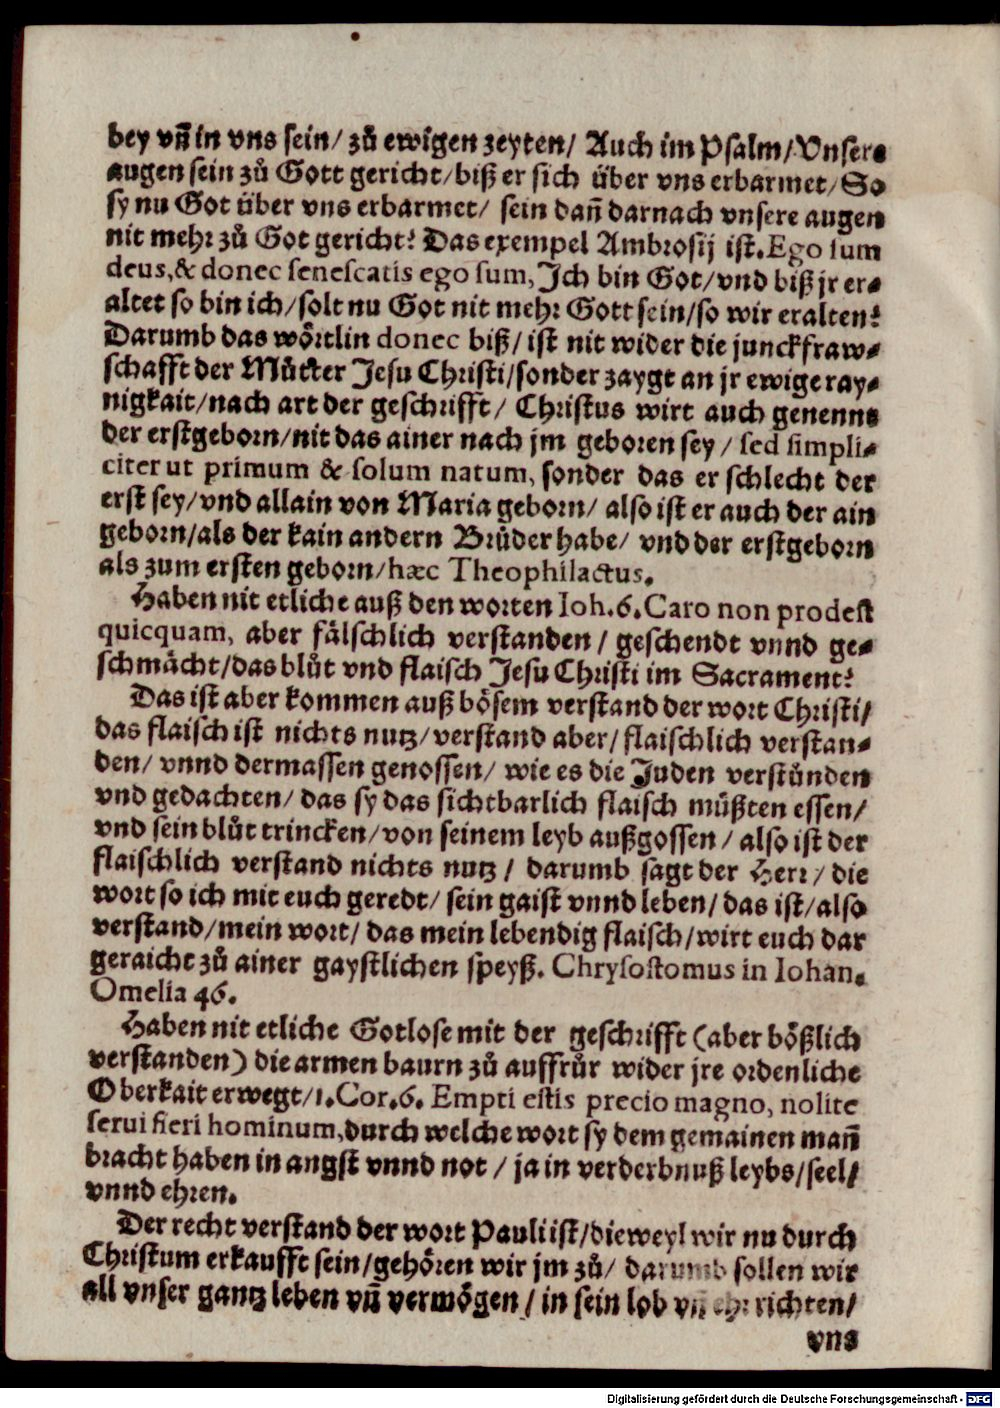 bey vñ in vns sein/ zů ewigen zeyten/ Auch im Psalm/ Vnsere
augen sein zů Gott gericht/ biß er sich über vns erbarmet/ So
sy nu Got über vns erbarmet/ sein dañ darnach vnsere augen
nit mehr zů Got gericht? Das exempel Ambrosij ist. Ego sum
deus, & donec senescatis ego sum, Jch bin Got/ vnd biß jr er-
altet so bin ich/ solt nu Got nit mehr Gott sein/ so wir eralten?
Darumb das wörtlin donec biß/ ist nit wider die junckfraw-
schafft der Můtter Jesu Christi/ sonder zaygt an jr ewige ray-
nigkait/ nach art der geschrifft/ Christus wirt auch genennt
der erstgeborn/ nit das ainer nach jm geboren sey/ sed simpli-
citer ut primum & solum natum, sonder das er schlecht der
erst sey/ vnd allain von Maria geborn/ also ist er auch der ain
geborn/ als der kain andern Brůder habe/ vnd der erstgeborn
als zum ersten geborn/ hæc Theophilactus.
Haben nit etliche auß den worten Ioh.6. Caro non prodest
quicquam, aber fälschlich verstanden/ geschendt vnnd ge-
schmächt/ das blůt vnd flaisch Jesu Christi im Sacrament?
Das ist aber kommen auß bösem verstand der wort Christi/
das flaisch ist nichts nutz/ verstand aber/ flaischlich verstan-
den/ vnnd dermassen genossen/ wie es die Juden verstůnden
vnd gedachten/ das sy das sichtbarlich flaisch müßten essen/
vnd sein blůt trincken/ von seinem leyb außgossen/ also ist der
flaischlich verstand nichts nutz/ darumb sagt der Herr/ die
wort so ich mit euch geredt/ sein gaist vnnd leben/ das ist/ also
verstand/ mein wort/ das mein lebendig flaisch/ wirt euch dar
geraicht zů ainer gaystlichen speyß. Chrysostomus in Iohan.
Omelia 46.
Haben nit etliche Gotlose mit der geschrifft (aber bößlich
verstanden) die armen baurn zů auffrůr wider jre ordenliche
Oberkait erwegt/ 1.Cor.6. Empti estis precio magno, nolite
serui fieri hominum, durch welche wort sy dem gemainen mañ
bracht haben in angst vnnd not/ ja in verderbnuß leybs/ seel/
vnnd ehren.
Der recht verstand der wort Pauli ist/ dieweyl wir nu durch
Christum erkaufft sein/ gehören wir jm zů/ darumb sollen wir
all vnser gantz leben vñ vermögen/ in sein lob vñ ehr richten/
vns
Digitalisierung gefördert durch die Deutsche Forschungsgemeinschaft - DFG